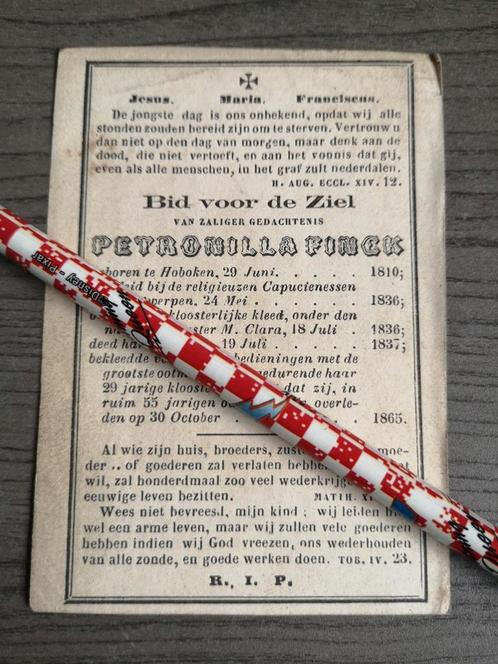 Jesus. Maria. Franciscus.
De jongste dag is ons onbekend, opdat wij alle
stonden zouden bereid zijn om te sterven. Vertrouw u
dan niet op den dag van morgen, maar denk aan de
dood, die niet vertoeft, en aan het vonnis dat gij,
even als alle menschen, in het graf zult nederdalen.
H. AUG. ECCL. XIV. 12.
Bid voor de Ziel
VAN ZALIGER GEDACHTENIS
PETRONILLA FINCK
geboren te Hoboken, 29 Juni. . . . . . 1810;
bij de religieuzen Capucienessen
24 Mei . . . . . 1836;
kloosterlijke kleed, onder den
M. Clara, 18 Juli . 1836;
deed 19 Juli . . . . . 1837;
bekleedde bedieningen met de
grootste gedurende haar
29 jarige dat zij, in
ruim 55 jarigen overle-
den op 30 October . 1865.
Al wie zijn huis, broeders, moe-
der .. of goederen zal verlaten
wil, zal honderdmaal zoo veel
eeuwige leven bezitten. MATTH.
Wees niet bevreesd, mijn kind; wij leiden
wel een arme leven, maar wij zullen vele goederen
hebben indien wij God vreezen, ons wederhouden
van alle zonde, en goede werken doen. TOB. IV. 23.
R. I. P.
Disney - Pixar